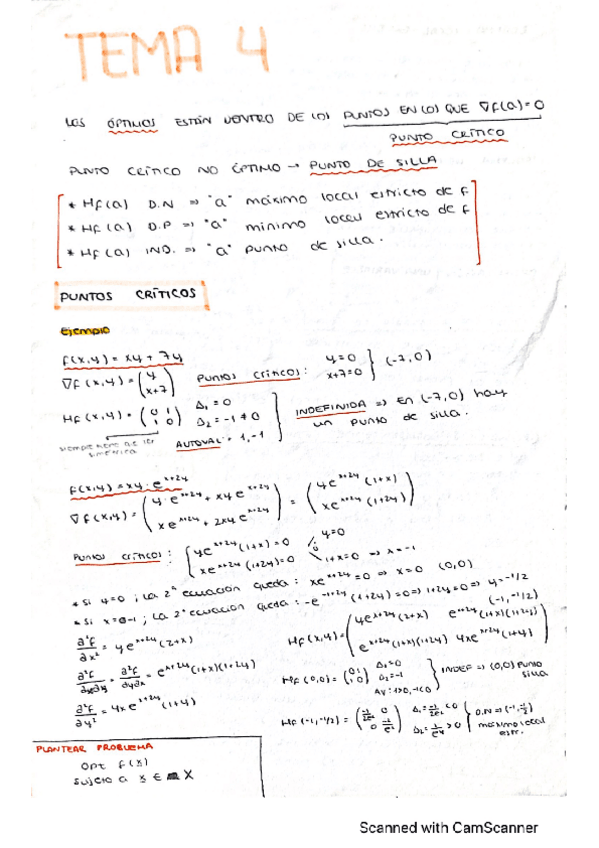 TEMA 4
LOS ÓPTIMOS ESTÁN DENTRO DE LOS PUNTOS EN LOS QUE ∇F(a)=0
PUNTO CRÍTICO
PUNTO CRÍTICO NO ÓPTIMO → PUNTO DE SILLA
* HF(a) D.N ⇒ "a" máximo local estricto de F
* HF(a) D.P ⇒ "a" mínimo local estricto de F
* HF(a) IND. ⇒ "a" punto de silla.
PUNTOS CRÍTICOS
Ejemplo
F(x,y) = xy + 7y
∇F(x,y) = (y / x+7) Puntos críticos: y=0 / x+7=0 } (-7,0)
HF(x,y) = (0 1 / 1 0) Δ₁ = 0 / Δ₂ = -1 ≠ 0 } INDEFINIDA ⇒ En (-7,0) hay un punto de silla.
siempre debe de ser simétrica AUTOVAL = 1,-1
F(x,y) = xy · e^x+2y
∇F(x,y) = (y·e^x+2y + xy e^x+2y / x e^x+2y + 2xy e^x+2y) = (y e^x+2y (1+x) / x e^x+2y (1+2y))
Puntos críticos: { y e^x+2y (1+x) = 0 / x e^x+2y (1+2y) = 0 y=0 ó 1+x=0 ⇒ x=-1
* Si y=0; la 2ª ecuación queda: x e^x+2y = 0 ⇒ x=0 (0,0)
* Si x=-1; la 2ª ecuación queda: -e^-1+2y (1+2y) = 0 ⇒ 1+2y=0 ⇒ y=-1/2 (-1,-1/2)
∂²F/∂x² = y e^x+2y (2+x)
HF(x,y) = (y e^x+2y (2+x) e^x+2y (1+x)(1+2y) / e^x+2y (1+x)(1+2y) 4x e^x+2y (1+y))
∂²F/∂x∂y = ∂²F/∂y∂x = e^x+2y (1+x)(1+2y)
HF(0,0) = (0 1 / 1 0) Δ₁=0 / Δ₂=-1 / AV: 1>0, -1<0 } INDEF ⇒ (0,0) punto silla
∂²F/∂y² = 4x e^x+2y (1+y)
HF(-1,-1/2) = D.N ⇒ (-1,-1/2) máximo local estr.
PLANTEAR PROBLEMA
Opt F(x)
Sujeto a x ∈ X
Scanned with CamScanner